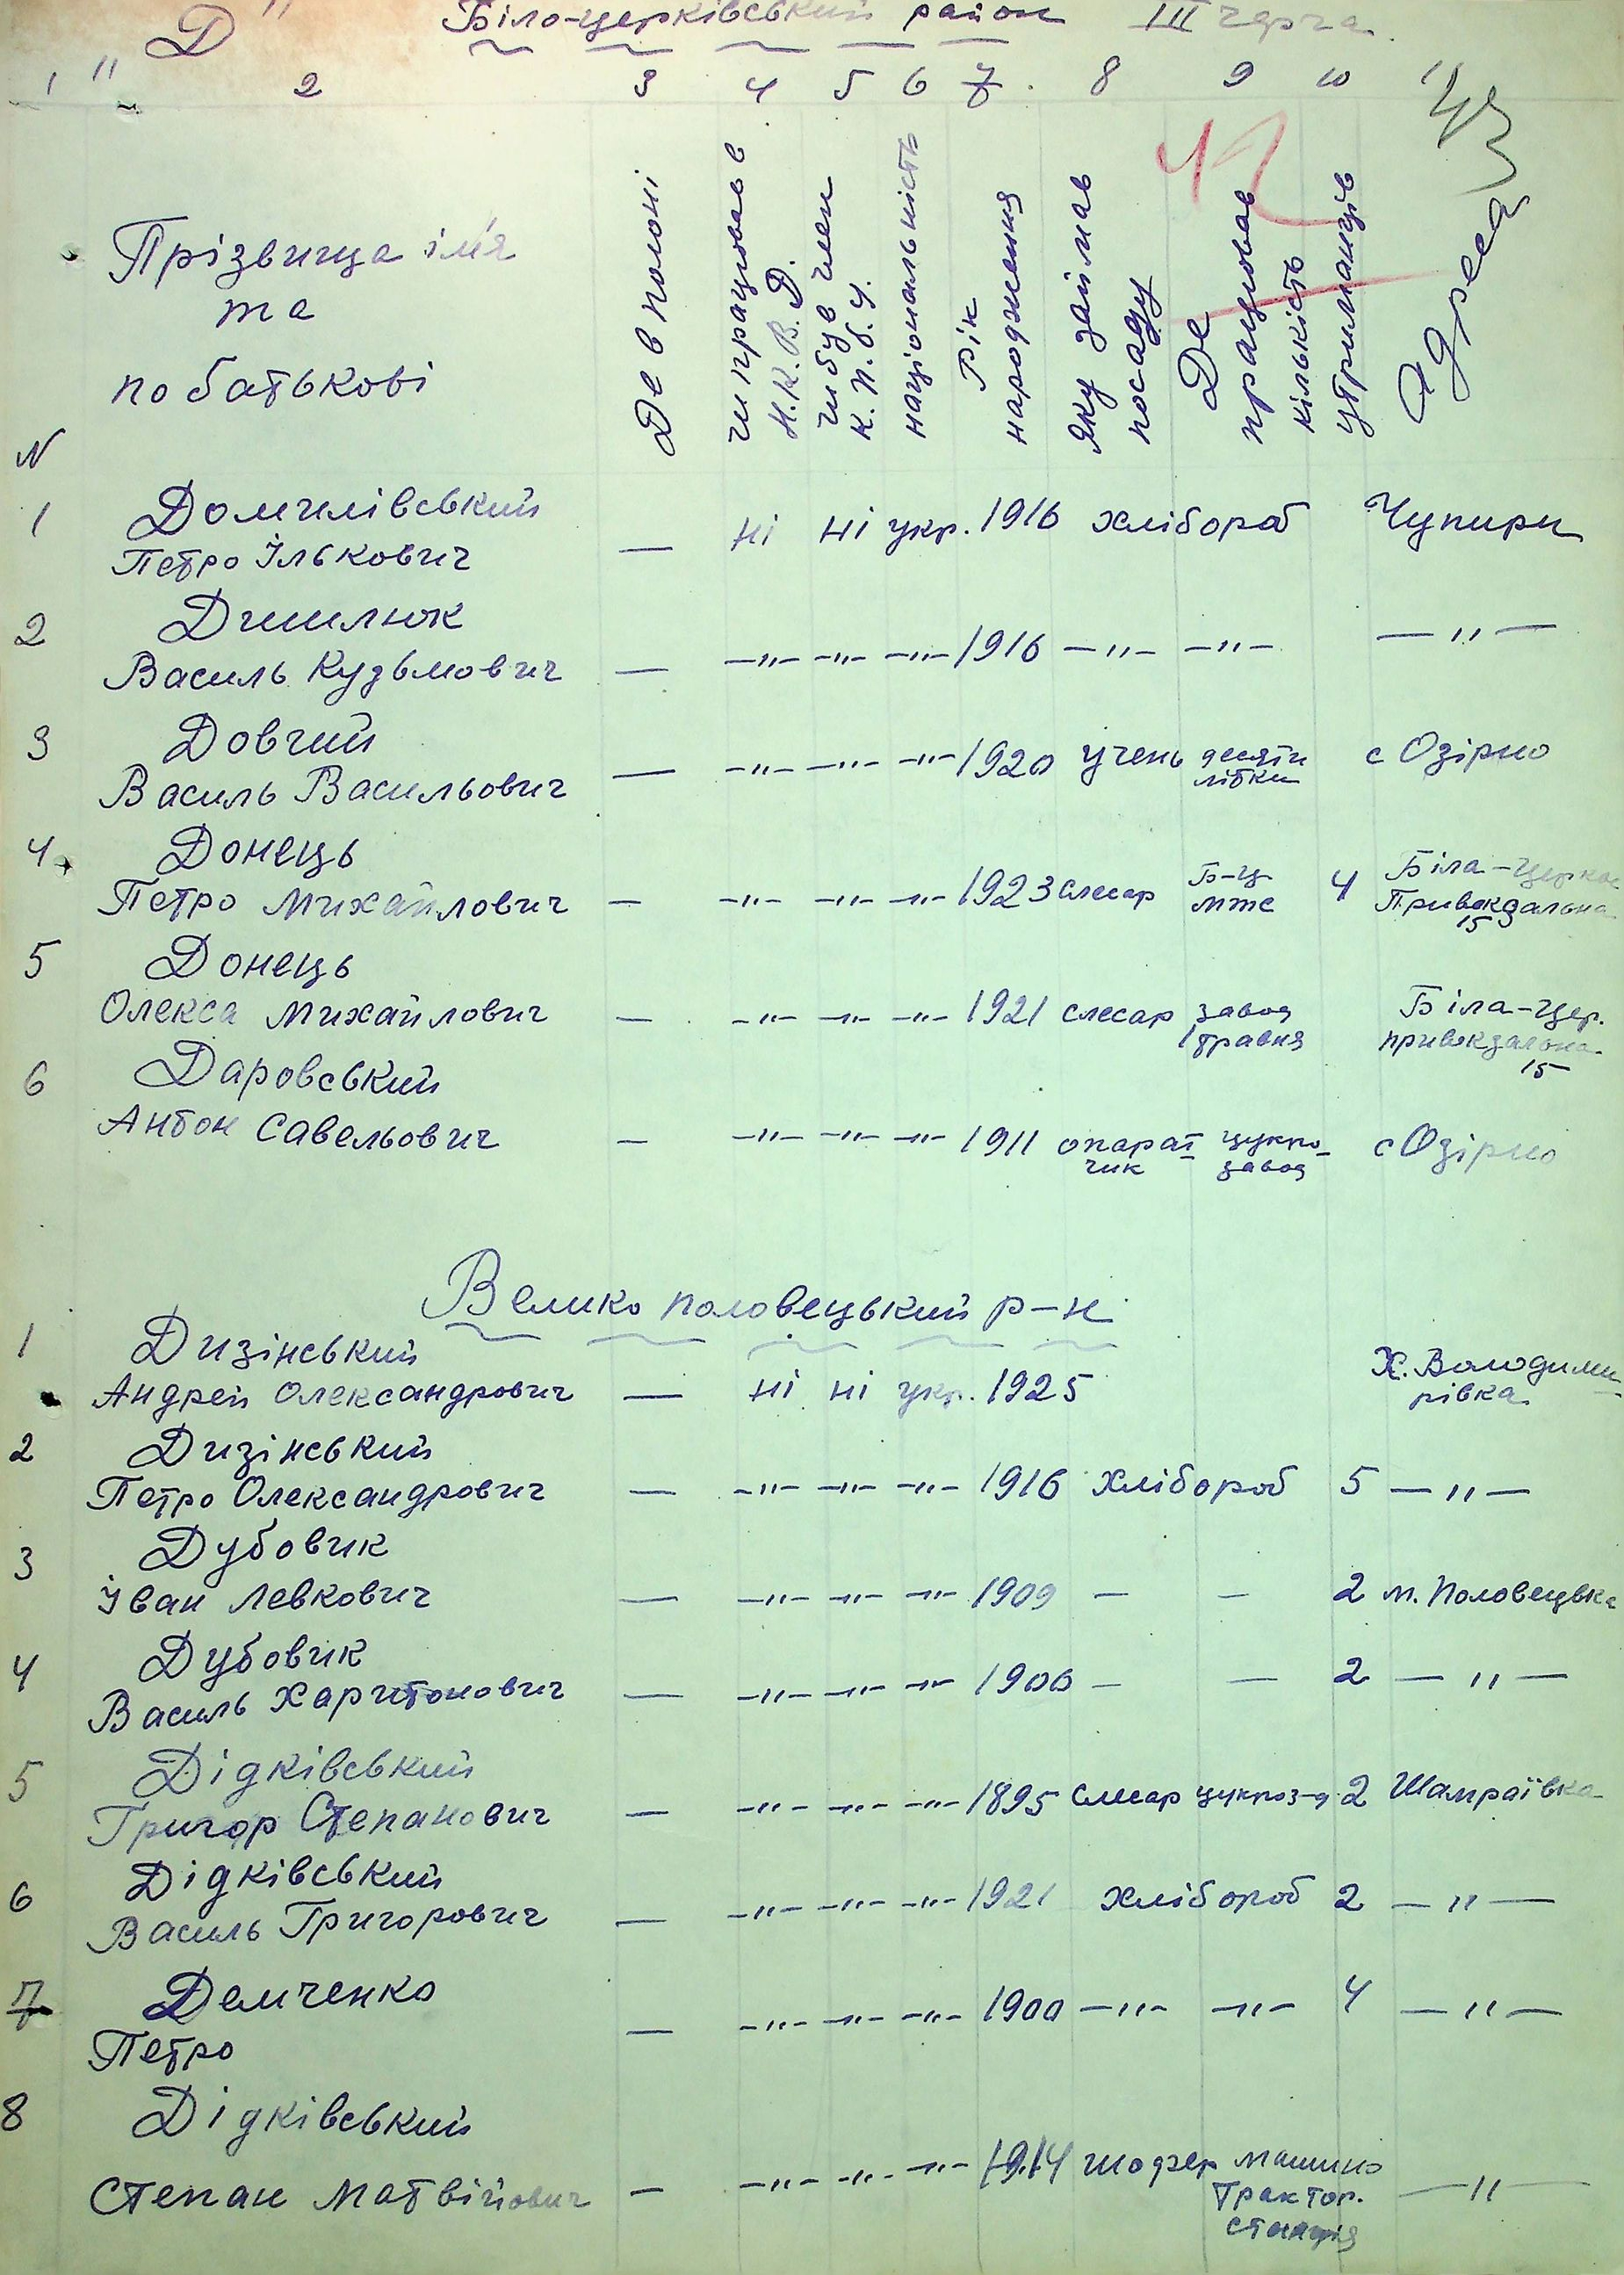 "Д" Біло-церківський район III черга
1 2 3 4 5 6 7 8 9 10 11
43
42
N
Прізвища ім'я
та
по батькові
Де в полоні
чи працював в
Н.К.В.Д.
чи був член
К.П.б.У.
національність
Рік
народження
яку займав
посаду
Де
працював
кількість
утриманців
Адреса
1 Домилівський
Петро Ількович — ні ні укр. 1916 хлібороб Чупири
2
Василь Кузьмович — —"— —"— —"— 1916 —"— —"— —"—
3 Довгий
Василь Васильович — —"— —"— —"— 1920 учень десяти літки с Озірно
4 Донець
Петро Михайлович — —"— —"— —"— 1923 слесар Б-Ц мтс 4 Біла-Церква Привокзальна 15
5 Донець
Олекса Михайлович — —"— —"— —"— 1921 слесар завод 1 травня Біла-Цер. привокзальна 15
6 Даровський
Антон Савельович — —"— —"— —"— 1911 опарат-чик цукро-завод с Озірно
Велико половецький р-н
1 Дизінський
Андрей Олександрович — ні ні укр. 1925 Х. Володими-рівка
2 Дизінський
Петро Олександрович — —"— —"— —"— 1916 хлібороб 5 —"—
3 Дубовик
Іван Левкович — —"— —"— —"— 1909 — — 2 м. Половецьке
4 Дубовик
Василь Харитонович — —"— —"— —"— 1900 — — 2 —"—
5 Дідківський
Григор Степанович — —"— —"— —"— 1895 слесар цукроз-д 2 Шамраївка
6 Дідківський
Василь Григорович — —"— —"— —"— 1921 хлібороб 2 —"—
7 Демченко
Петро — —"— —"— —"— 1900 —"— —"— 4 —"—
8 Дідківський
Степан Матвійович — —"— —"— —"— 1914 шофер машино трактор. станція —"—